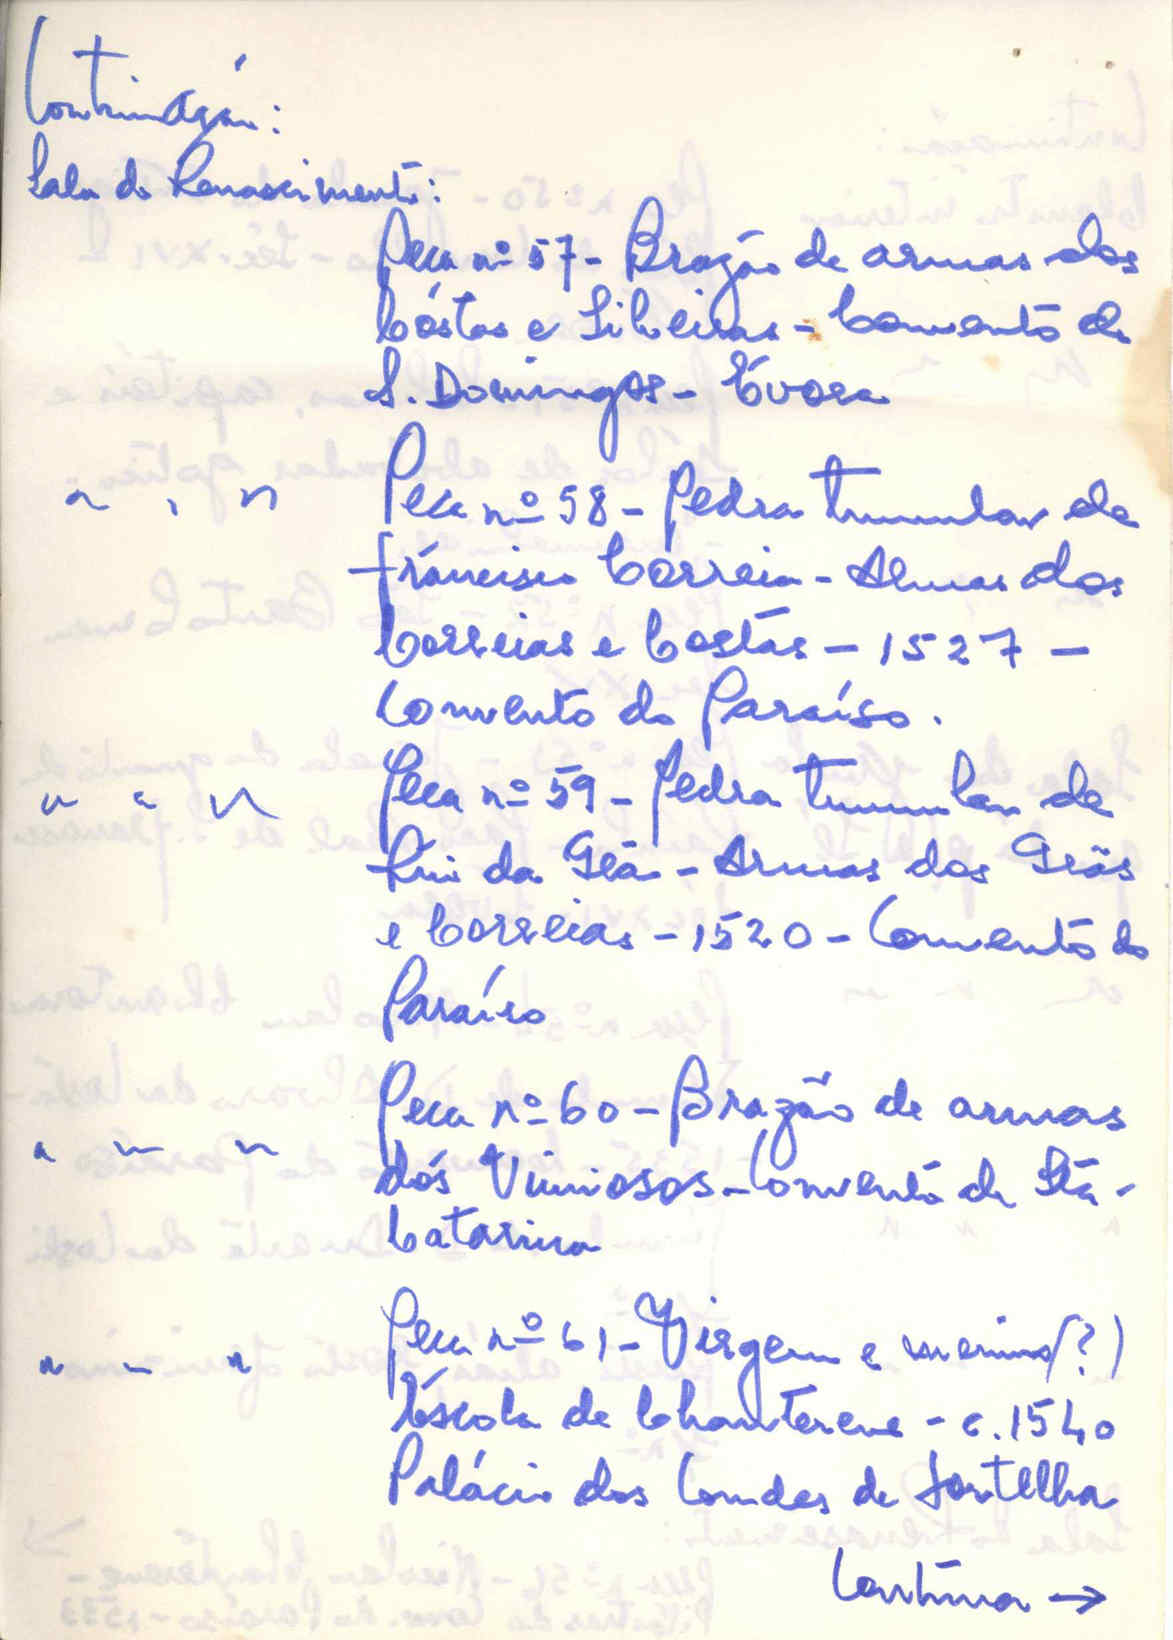 Continuação:
Sala do Renascimento:
Peça nº 57 - Brazão de armas dos
Cóstas e Silveiras - Convento de
S. Domingos - Évora
" " " Peça nº 58 - Pedra Tumular de
Francisco Correia - Armas dos
Correias e Costas - 1527 -
Convento do Paraíso.
" " " Peça nº 59 - Pedra Tumular de
Rui da Grã - Armas dos Grãs
e Correias - 1520 - Convento do
Paraíso
" " " Peça nº 60 - Brazão de armas
dos Vimiosos - Convento de Stª
Catarina
" " " Peça nº 61 - Virgem e menino (?)
Éscola de Chanterene - c. 1540
Palácio dos Condes de Sortelha
Continua →